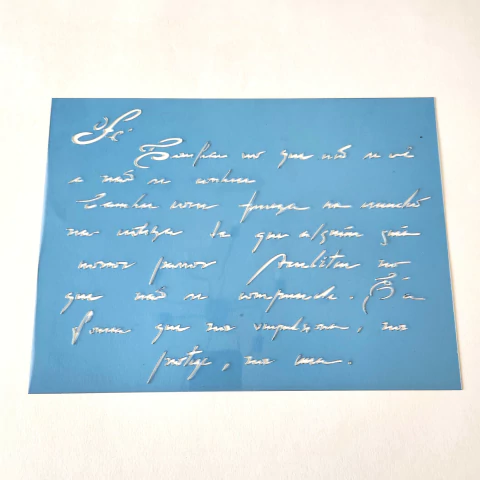 Fé
Confiar no que não se vê
e não se conhece
Caminhar com firmeza na
na certeza de que alguém guia
nossos passos Acreditar no
que não se compreende. Fé é a
força que nos impulsiona, nos
protege, nos una.